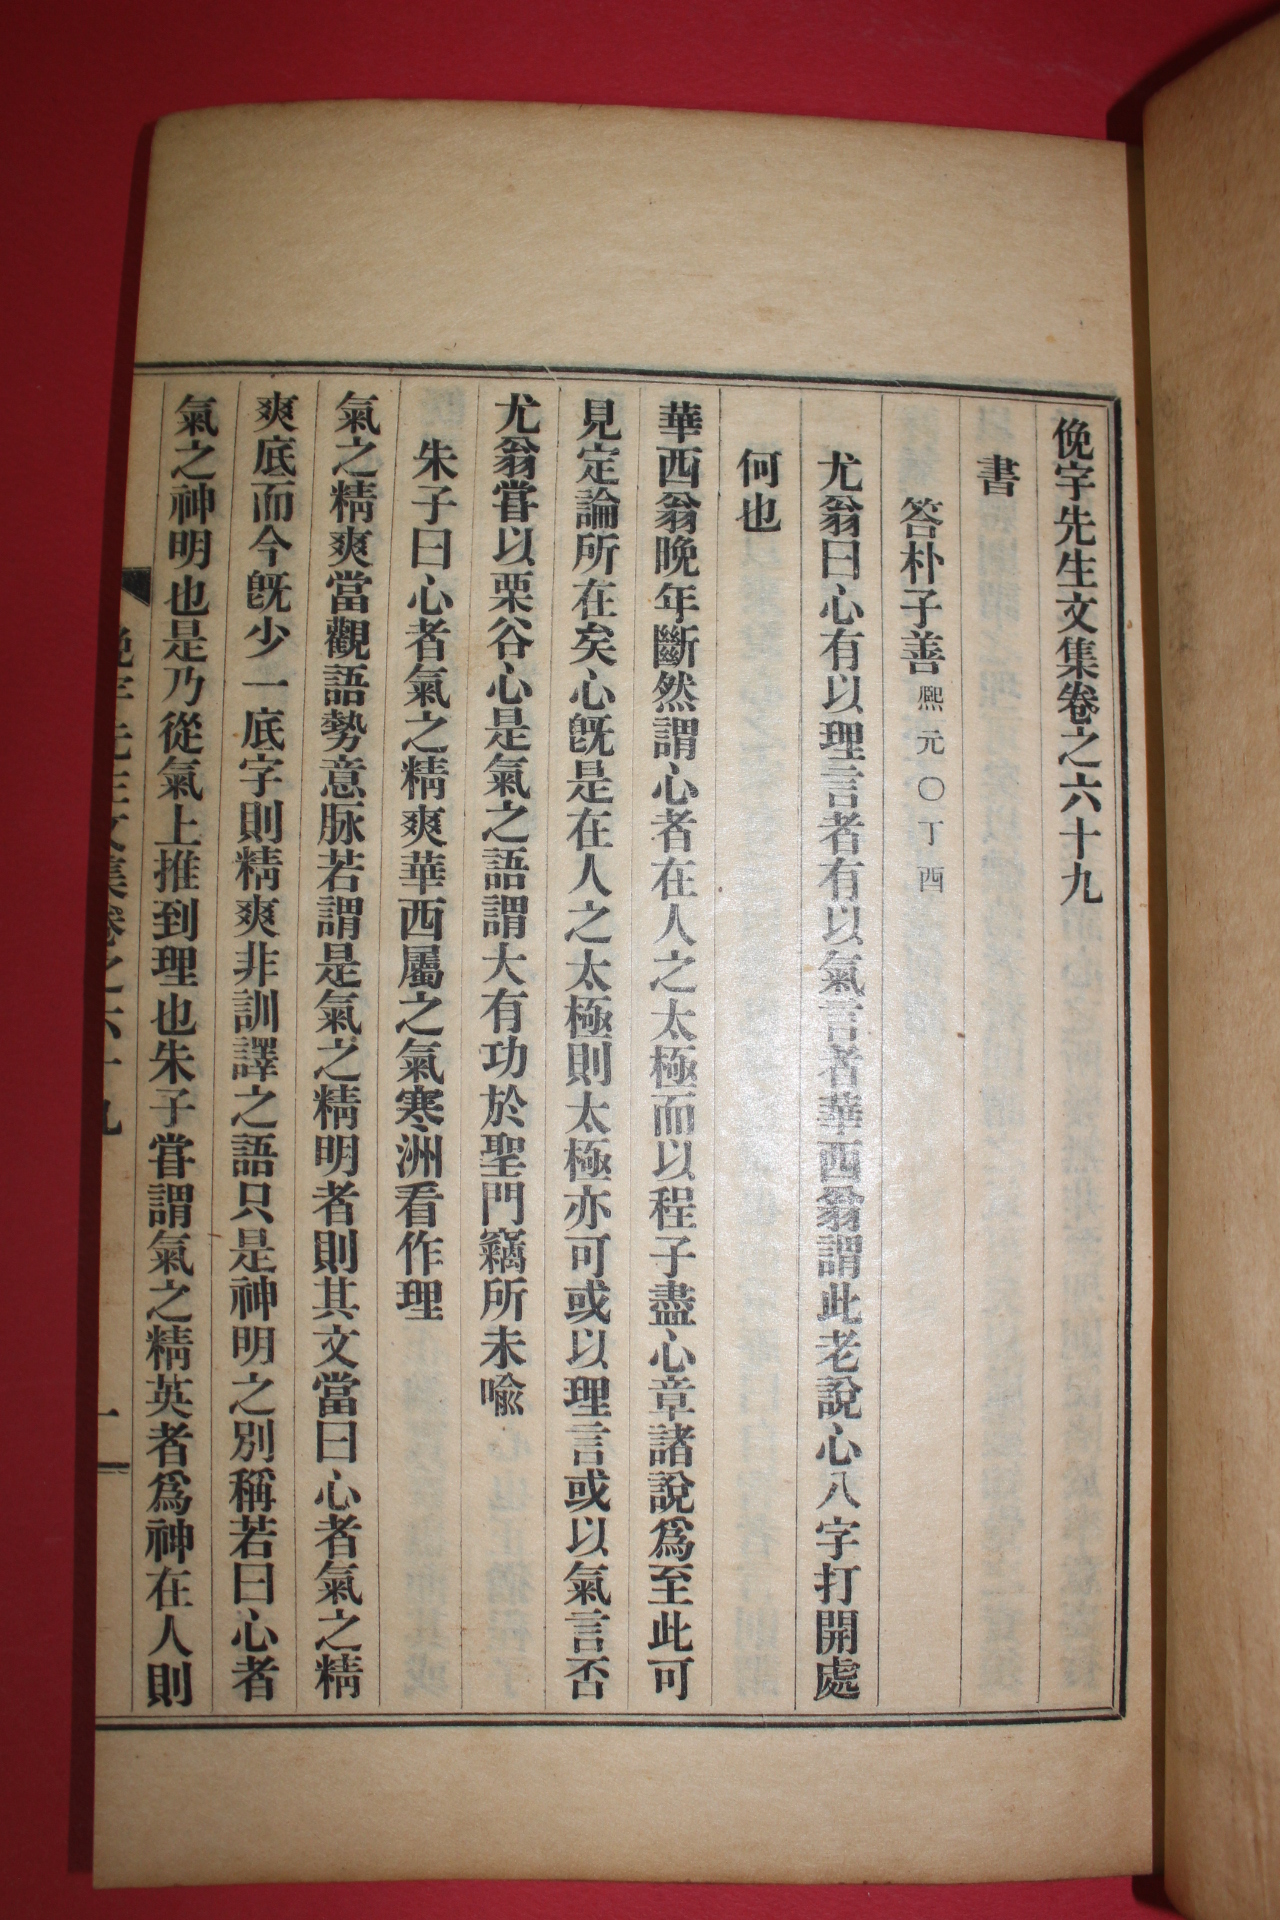 俛宇先生文集卷之六十九
書
答朴子善熙元○丁酉
尤翁曰心有以理言者有以氣言者華西翁謂此老說心八字打開處
何也
華西翁晩年斷然謂心者在人之太極而以程子盡心章諸說爲至此可
見定論所在矣心旣是在人之太極則太極亦可或以理言或以氣言否
尤翁甞以栗谷心是氣之語謂大有功於聖門竊所未喩
朱子曰心者氣之精爽華西屬之氣寒洲看作理
氣之精爽當觀語勢意脉若謂是氣之精明者則其文當曰心者氣之精
爽底而今旣少一底字則精爽非訓譯之語只是神明之別稱若曰心者
氣之神明也是乃從氣上推到理也朱子甞謂氣之精英者爲神在人則
俛宇先生文集卷之六十九
一